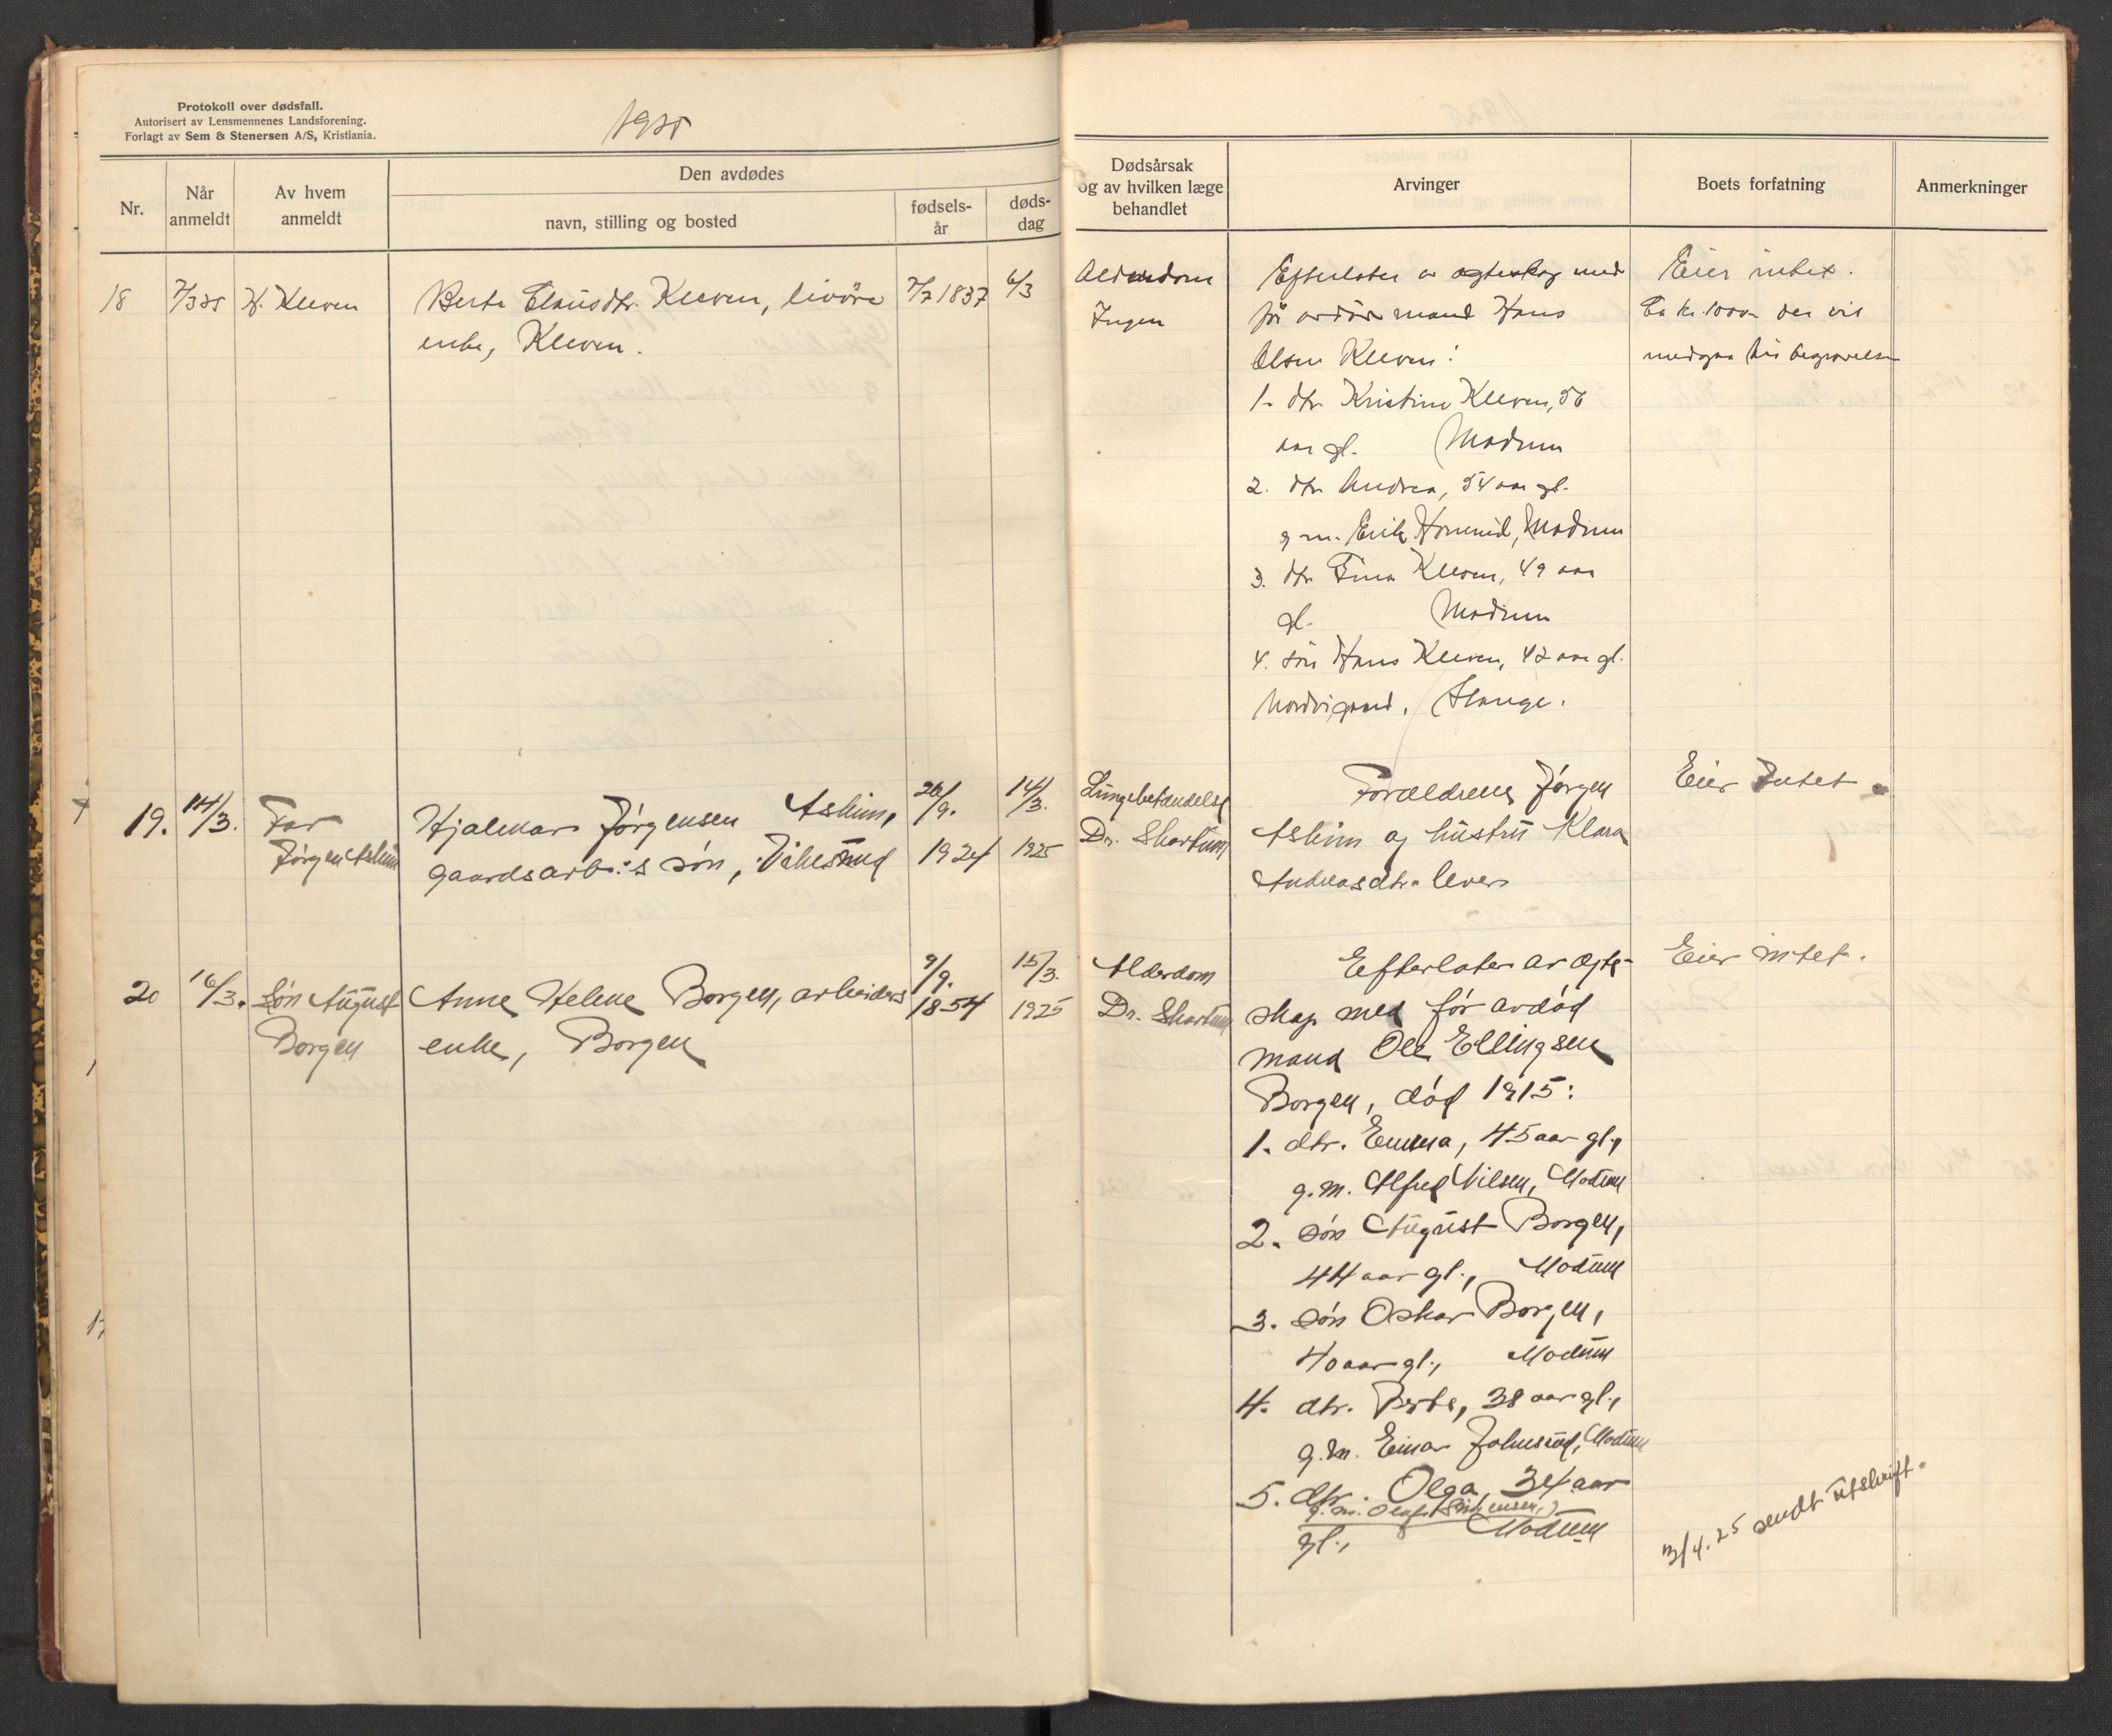 Protokoll over dødsfall.
Autorisert av Lensmennenes Landsforening.
Forlagt av Sem & Stenersen A/S, Kristiania.
1925
Nr.
Når anmeldt
Av hvem anmeldt
Den avdødes
navn, stilling og bosted
fødsels-
år
døds-
dag
Dødsårsak
og av hvilken læge
behandlet
Arvinger
Boets forfatning
Anmerkninger
18
7/3 25
H. Kleven
Berte Clausdtr. Kleven, livøre
enke, Kleven.
7/7 1837
6/3
Alderdom
Ingen
Efterlater av ægteskap med
før avdøde mand Hans
Olsen Kleven:
1. dtr Kristine Kleven, 56
aar gl. Modum
2. dtr Andrea, 54 aar gl.
g m. Erik Modum
3. dtr Tina Kleven, 49 aar
gl. Modum
4. søn Hans Kleven, 42 aar gl.
Stange.
Eier intet.
Ca kr. 100 der vil
medgaa til begravelse
19.
14/3.
Far
Jørgen Askim
Hjalmar Jørgensen Askim,
gaardsarb.:s søn, Vikesund
26/9.
1924
14/3.
1925
Lungebetændelse
Dr. Skartum
Forældrene Jørgen
Askim og hustru Klara
Andreasdtr. lever
Eier Intet.
20
16/3.
Søn August
Borgen
Anne Helene Borgen, arbeiders
enke, Borgen
9/9.
1854
15/3.
1925
Alderdom
Dr. Skartum
Efterlater av ægte-
skap med før avdød
mand Ole Ellingsen
Borgen, død 1915:
1. dtr. Emma, 45 aar gl.,
g.m. Alfred Nilsen, Modum
2. søn August Borgen,
44 aar gl., Modum
3. søn Oskar Borgen,
40 aar gl., Modum
4. dtr. Berte, 38 aar gl.,
g.m. Einar Johnsrud, Modum
5. dtr. Olga, 34 aar
g.m. Olaf
gl., Modum
Eier intet.
3/4.25 sendt utskrift.